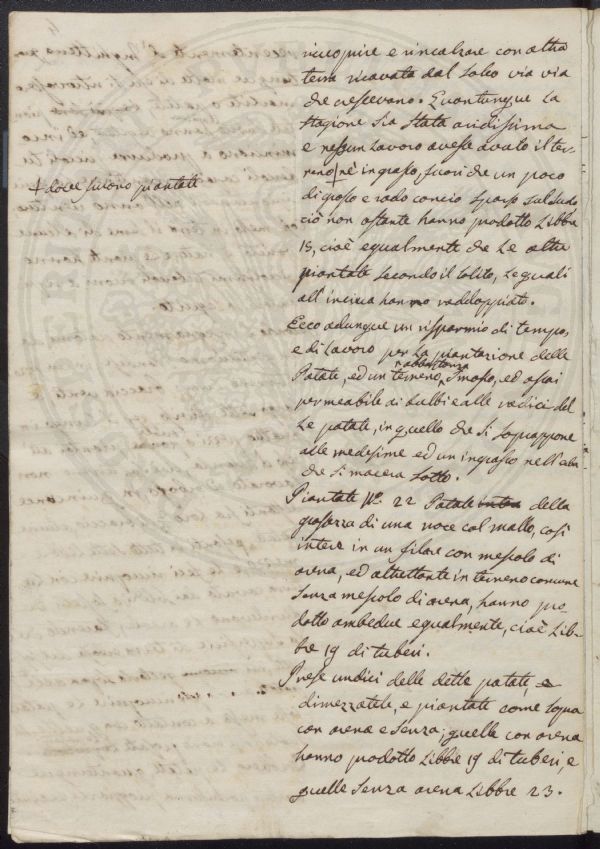 ricuoprire e rincalzare con altra
terra ricavata dal solco via via
che crescevano. Quantunque la
stagione sia stata aridissima
e nessun lavoro avesse avuto il ter-
reno + nè ingrasso, fuori che un poco
+ dove furono piantate
di grosso e rado concio sparso sul suolo
ciò non ostante hanno prodotto Libbre
15, cioè egualmente che le altre
piantate secondo il solito, le quali
all'incirca hanno raddoppiato.
Ecco adunque un risparmio di tempo,
e di lavoro per la piantazione delle
abbastanza
Patate, ed un terreno, smosso, ed assai
permeabile ai bulbi e alle radici del
le patate, in quello che si soprappone
alle medesime ed un ingrasso nell'erba
che si macera sotto.
Piantate N.º 22 Patate intere della
grossezza di una noce col mallo, così
intere in un filare con mescolo di
arena, ed altrettante in terreno comune
senza mescolo di arena, hanno pro-
dotto ambedue egualmente, cioè Lib-
bre 19 di tuberi.
Prese undici delle dette patate, e
dimezzatele, e piantate come sopra
con arena e senza; quelle con arena
hanno prodotto Libbre 19 di tuberi, e
quelle senza arena Libbre 23.